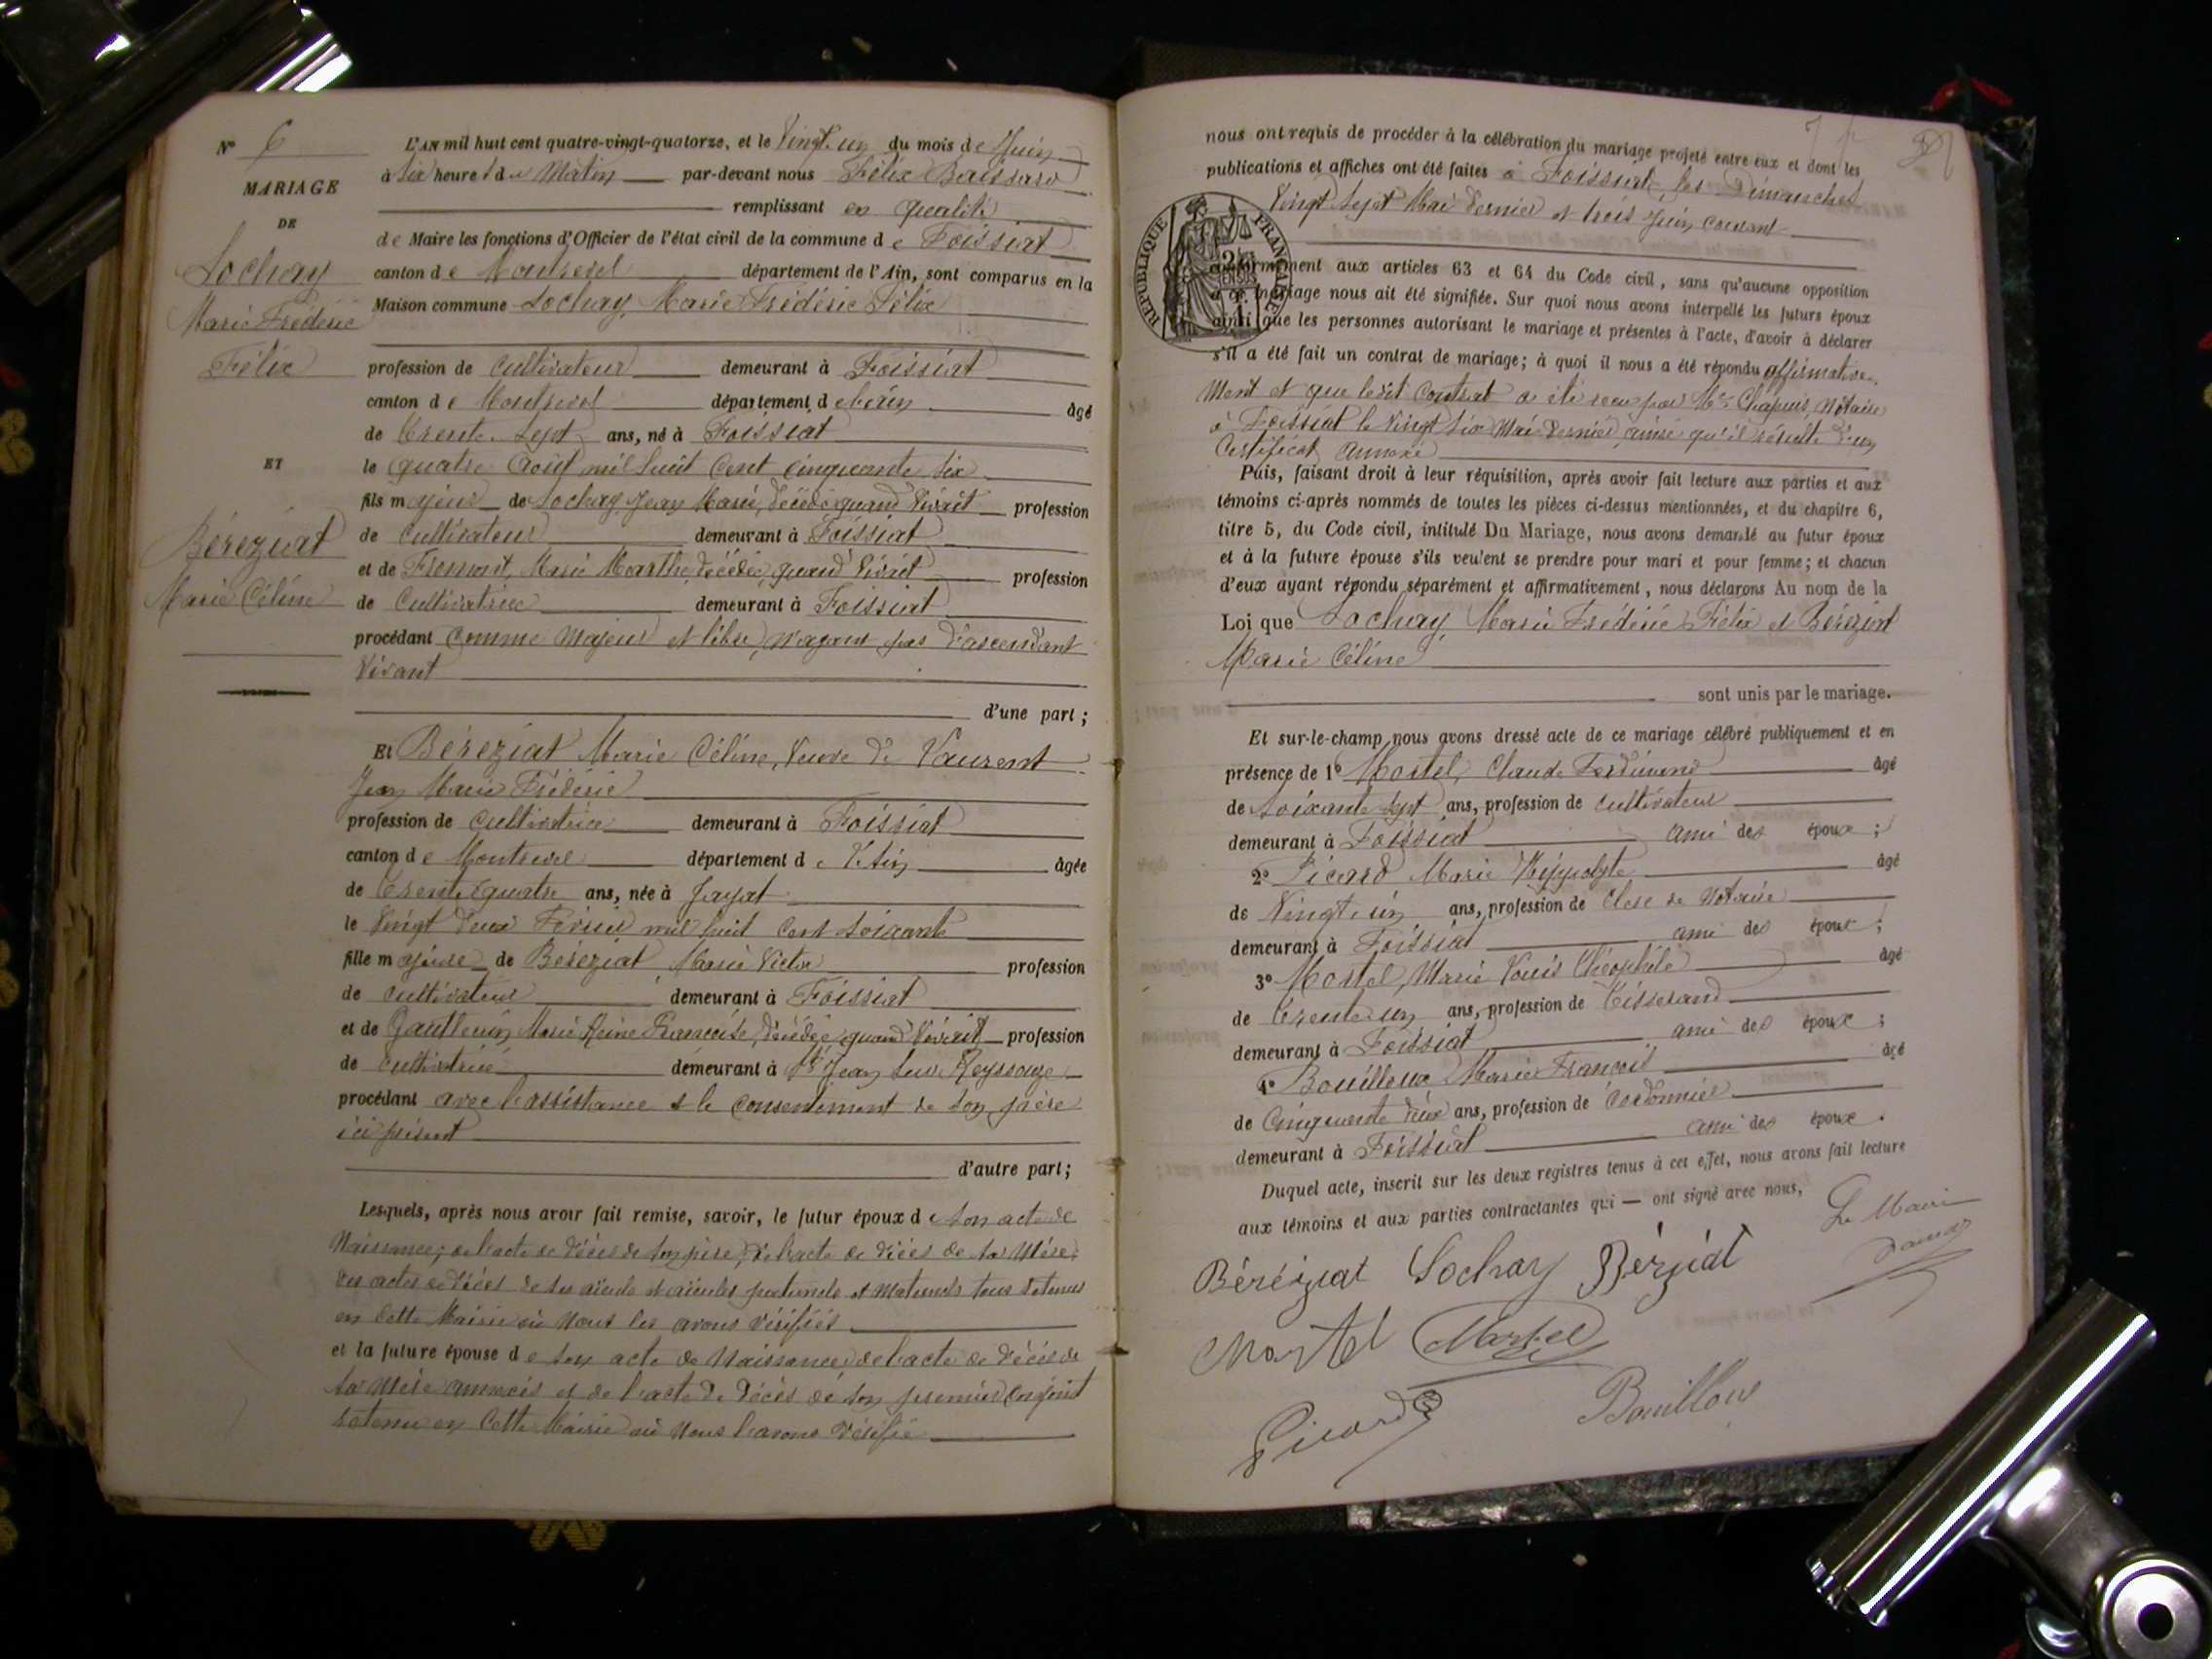 N° 6
MARIAGE
DE
Lochay
Marie Frédéric
Félix
ET
Béréziat
Marie Céline
L'AN mil huit cent quatre-vingt-quatorze, et le Vingt un du mois de Juin
à Six heures du Matin par-devant nous Félix
remplissant en qualité
de Maire les fonctions d'Officier de l'état civil de la commune de Foissiat
canton de Montrevel département de l'Ain, sont comparus en la
Maison commune Lochay, Marie Frédéric Félix
profession de Cultivateur demeurant à Foissiat
canton de Montrevel département de l'Ain âgé
de Trente Sept ans, né à Foissiat
le quatre Août mil huit Cent cinquante six
fils majeur de Lochay Jean Marie, décédé quand vivait profession
de Cultivateur demeurant à Foissiat
et de Fremont, Marie Marthe, décédée, quand vivait profession
de Cultivatrice demeurant à Foissiat
procédant comme Majeur et libre, n'ayant pas d'ascendant
Vivant
d'une part;
Et Béréziat Marie Céline, Veuve de Vaurent
Jean Marie Frédéric
profession de Cultivatrice demeurant à Foissiat
canton de Montrevel département de l'Ain âgée
de Trente quatre ans, née à Jayat
le Vingt deux Février mil huit Cent Soixante
fille majeure de Béréziat Marie Victor profession
de cultivateur demeurant à Foissiat
et de Marie Reine Françoise, décédée quand vivait profession
de cultivatrice demeurant à St Jean sur Reyssouze
procédant avec l'assistance et le consentement de son père
ici présent
d'autre part;
Lesquels, après nous avoir fait remise, savoir, le futur époux de son acte de
Naissance; de l'acte de décès de son père, de l'acte de décès de sa Mère,
des actes de décès de ses aïeuls et aïeules paternels et maternels tous retenus
en cette Mairie où Nous les avons vérifiés
et la future épouse de son acte de Naissance, de l'acte de décès de
sa Mère annexés et de l'acte de Décès de son premier Conjoint
retenu en Cette Mairie où Nous l'avons vérifié
nous ont requis de procéder à la célébration du mariage projeté entre eux et dont les
publications et affiches ont été faites à Foissiat, les Dimanches
Vingt Sept Mai dernier et trois Juin courant
RÉPUBLIQUE FRANÇAISE
conformément aux articles 63 et 64 du Code civil, sans qu'aucune opposition
à ce mariage nous ait été signifiée. Sur quoi nous avons interpellé les futurs époux
ainsi que les personnes autorisant le mariage et présentes à l'acte, d'avoir à déclarer
s'il a été fait un contrat de mariage; à quoi il nous a été répondu affirmative-
ment et que ledit Contrat a été reçu par Me Chapuis, Notaire
à Foissiat le Vingt Six Mai dernier, ainsi qu'il résulte d'un
Certificat annexé
Puis, faisant droit à leur réquisition, après avoir fait lecture aux parties et aux
témoins ci-après nommés de toutes les pièces ci-dessus mentionnées, et du chapitre 6,
titre 5, du Code civil, intitulé Du Mariage, nous avons demandé au futur époux
et à la future épouse s'ils veulent se prendre pour mari et pour femme; et chacun
d'eux ayant répondu séparément et affirmativement, nous déclarons Au nom de la
Loi que Lochay Marie Frédéric Félix et Béréziat
Marie Céline
sont unis par le mariage.
Et sur-le-champ nous avons dressé acte de ce mariage célébré publiquement et en
présence de 1° Mortel, Claude Ferdinand âgé
de Soixante Sept ans, profession de cultivateur
demeurant à Foissiat ami des époux;
2° Picard Marie Hippolyte âgé
de Vingt un ans, profession de Clerc de Notaire
demeurant à Foissiat ami des époux;
3° Mortel, Marie Louis Théophile âgé
de Trente un ans, profession de Tisserand
demeurant à Foissiat ami des époux;
4° Bouilloux Marie François âgé
de Cinquante deux ans, profession de Cordonnier
demeurant à Foissiat ami des époux.
Duquel acte, inscrit sur les deux registres tenus à cet effet, nous avons fait lecture
aux témoins et aux parties contractantes qui — ont signé avec nous,
Le Maire
Béréziat Lochay Béréziat
Mortel Mortel
Picard Bouilloux